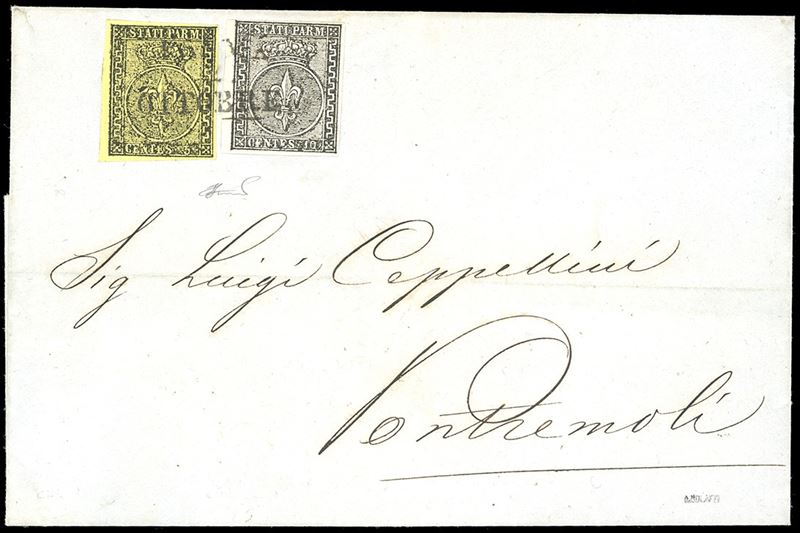 STATI PARM.
CENTES. 5
STATI PARM.
CENTES. 10
OTTOBRE
Sig Luigi Cappellini
Pontremoli